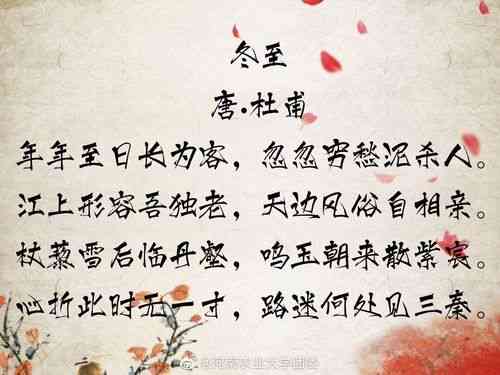 冬至
唐·杜甫
年年至日长为客，忽忽穷愁泥杀人。
江上形容吾独老，天边风俗自相亲。
杖藜雪后临丹壑，鸣玉朝来散紫宸。
心折此时无一寸，路迷何处见三秦。